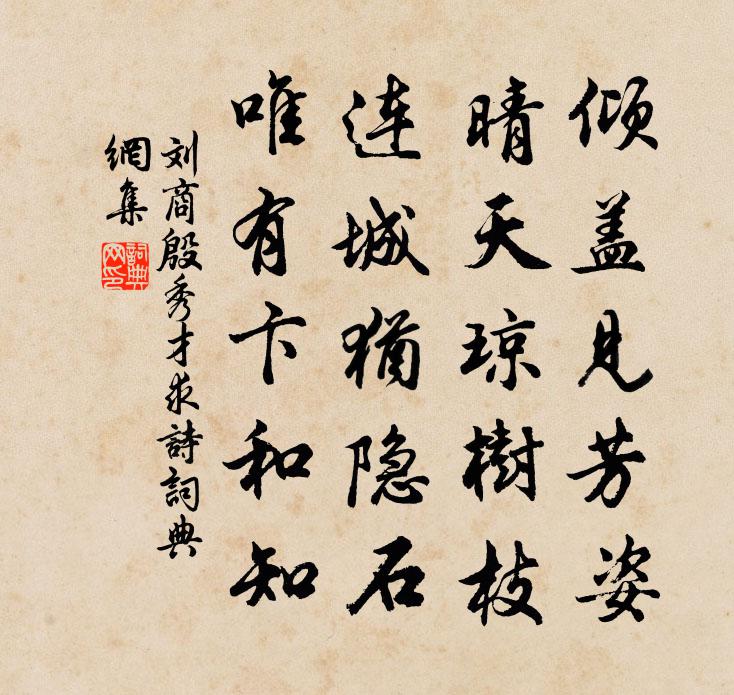 倾盖见芳姿
晴天琼樹枝
连城犹隐石
唯有卞和知
刘商殷秀才求詩詞典
網集
詞典
网印